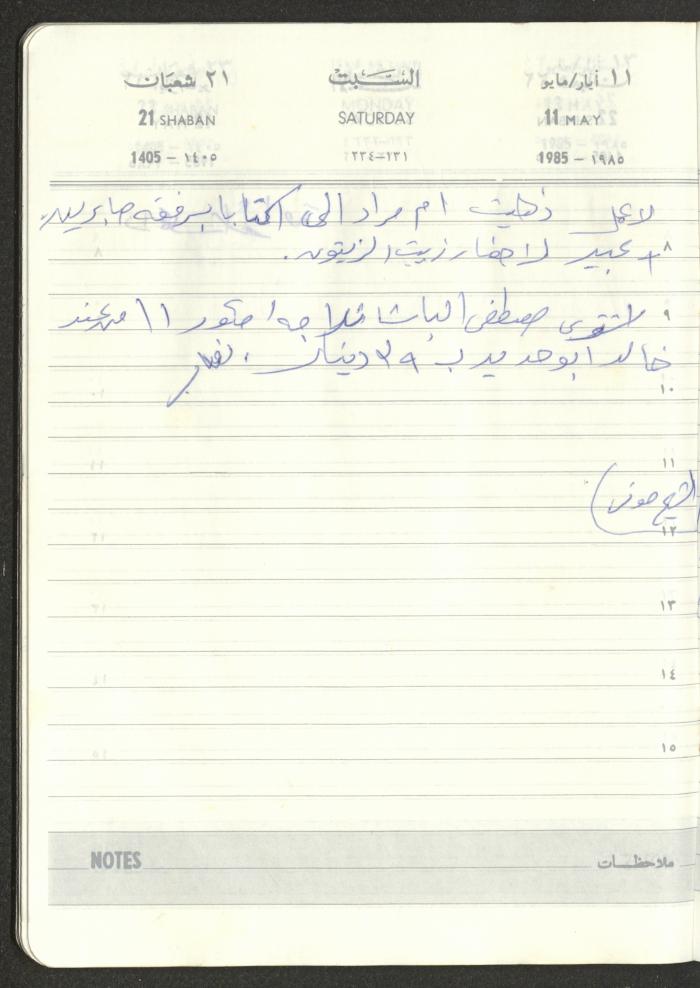 ١١ أيار/مايو السَّبت ٢١ شعبان
11 MAY SATURDAY 21 SHABAN
1985 – ١٩٨٥ ١٣١–٢٣٤ 1405 – ١٤٠٥
لا عمل ذهبت ام مراد الى اكتابا برفقه صابرين
٨ عبير لاحضار زيت الزيتون .
٩ اشترى مصطفى الباشا ثلاجه امكور ١١ من عند
خالد ابو حديد ب ٣٩ دينار .
١٠
١١
١٢
١٣
١٤
١٥
NOTES ملاحظات